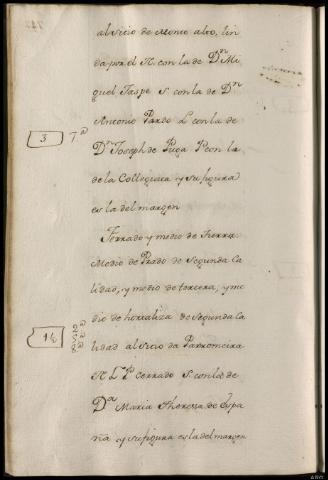 al sitio de Monte alto, lin
da por el N. con la de Dn. Mi
guel Taspe S. con la de Dn.
Antonio Pardo L. con la de
3 7a
Dn. Joseph de Puga P. con la
de la Collegiata y su figura
es la del margen
Ferrado y medio de Tierra
Medio de Prado de segunda ca
lidad, y medio de tercera, y me
dio de hortaliza de segunda ca
1½
lidad al sitio da Parromeira
N. L. P. cerrado S. con la de
Da. Maria Theressa de Espa
ña y su figura es la del margen